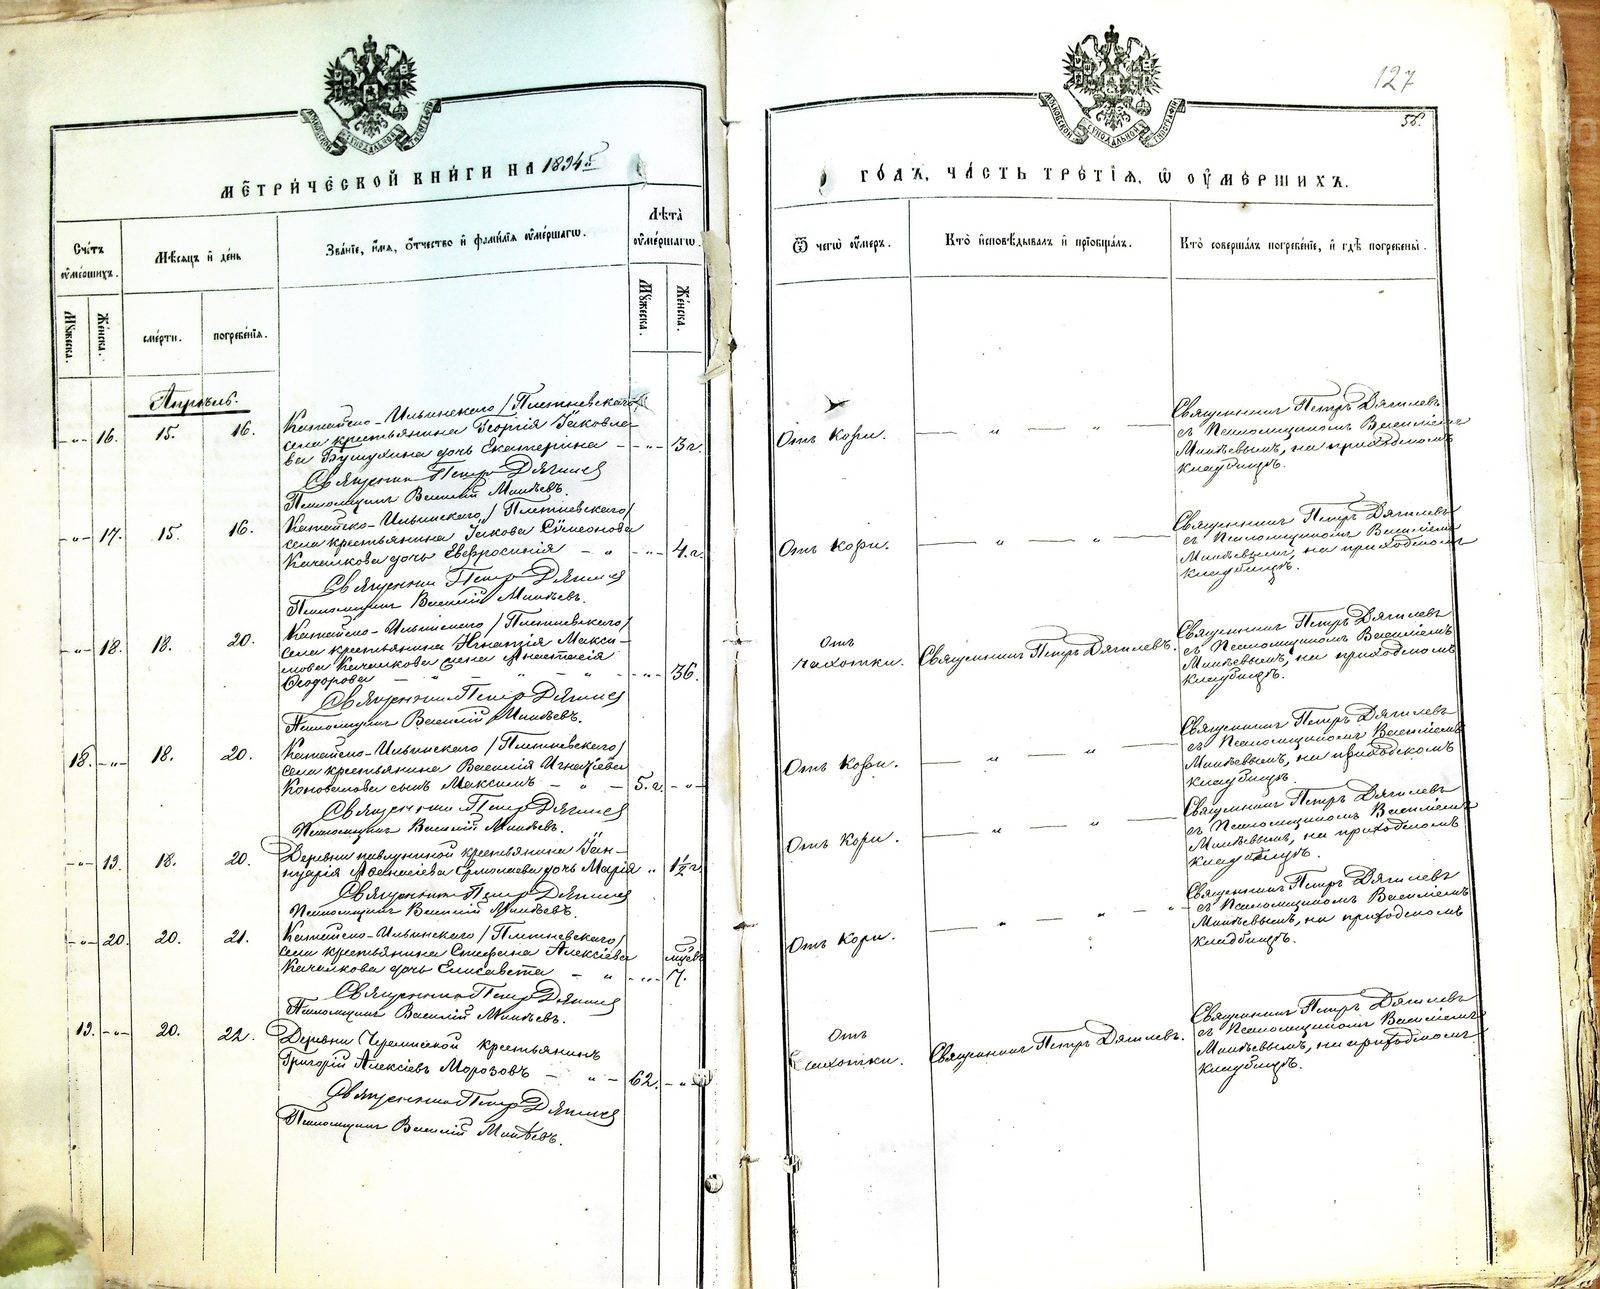 127
56.
МОСКОВСКОЙ СѴНОДАЛЬНОЙ ТИПОГРАФІИ
МОСКОВСКОЙ СѴНОДАЛЬНОЙ ТИПОГРАФІИ
МЕТРИЧЕСКОЙ КНИГИ НА 1894й
ГОДЪ, ЧАСТЬ ТРЕТІЯ, Ѡ ОУМЕРШИХЪ.
Счетъ оумершихъ.
Мѣсяцъ и день
Званіе, имя, отчество и фамилія оумершагѡ.
Лѣта оумершагѡ.
Ѿ чегѡ оумеръ.
Кто исповѣдывалъ и пріобщалъ.
Кто совершалъ погребеніе, и гдѣ погребены.
Мꙋжеска.
Женска.
смерти.
погребенія.
Мꙋжеска.
Женска.
Апрѣль.
Катайско-Ильинскаго /Плетневскаго/
-„- 16. 15. 16. села крестьянина Георгія Іаковле-
ва Бушухина дочь Екатерина — -„- 3 г.
Священникъ Петръ Дягилев
Псаломщикъ Василій Минѣевъ.
Отъ кори. — „ — „ —
Священникъ Петръ Дягилевъ
съ Псаломщикомъ Василіемъ
Минѣевымъ, на приходскомъ
кладбищѣ.
Катайско-Ильинскаго /Плетневскаго/
-„- 17. 15. 16. села крестьянина Іакова Сѵмеонова
Качалкова дочь Евфросинія — „ -„- 4. г.
Священникъ Петръ Дягилев
Псаломщикъ Василій Минѣевъ.
Отъ кори. — „ — „ —
Священникъ Петръ Дягилевъ
съ Псаломщикомъ Василіемъ
Минѣевымъ, на приходскомъ
кладбищѣ.
Катайско-Ильинскаго /Плетневскаго/
-„- 18. 18. 20. села крестьянина Игнатія Макси-
мова Качалкова жена Анастасія
Ѳеодорова — „ — „ — „ — -„- 36.
Священникъ Петръ Дягилев
Псаломщикъ Василій Минѣевъ.
Отъ
чахотки. Священникъ Петръ Дягилевъ.
Священникъ Петръ Дягилевъ
съ Псаломщикомъ Василіемъ
Минѣевымъ, на приходскомъ
кладбищѣ.
Катайско-Ильинскаго /Плетневскаго/
18. -„- 18. 20. села крестьянина Василія Игнатіева
Коновалова сынъ Максимъ — „ — 5. г. -„-
Священникъ Петръ Дягилев
Псаломщикъ Василій Минѣевъ.
Отъ кори. — „ — „ —
Священникъ Петръ Дягилевъ
съ Псаломщикомъ Василіемъ
Минѣевымъ, на приходскомъ
кладбищѣ.
-„- 19. 18. 20. Деревни крестьянина Іан-
нуарія Аѳанасіева Ермолаева дочь Марія „ 1½ г.
Священникъ Петръ Дягилев
Псаломщикъ Василій Минѣевъ.
Отъ кори. — „ — „ —
Священникъ Петръ Дягилевъ
съ Псаломщикомъ Василіемъ
Минѣевымъ, на приходскомъ
кладбищѣ.
Катайско-Ильинскаго /Плетневскаго/
-„- 20. 20. 21. села крестьянина Стефана Алексіева
Качалкова дочь Елисавета — „ -„- 7.
Священникъ Петръ Дягилев
Псаломщикъ Василій Минѣевъ.
Отъ кори. — „ — „ — „ —
Священникъ Петръ Дягилевъ
съ Псаломщикомъ Василіемъ
Минѣевымъ, на приходскомъ
кладбищѣ.
19. -„- 20. 22. Деревни Черемисской крестьянинъ
Григорій Алексіевъ Морозовъ — „ — 62. -„-
Священникъ Петръ Дягилев
Псаломщикъ Василій Минѣевъ.
Отъ
чахотки. Священникъ Петръ Дягилевъ.
Священникъ Петръ Дягилевъ
съ Псаломщикомъ Василіемъ
Минѣевымъ, на приходскомъ
кладбищѣ.